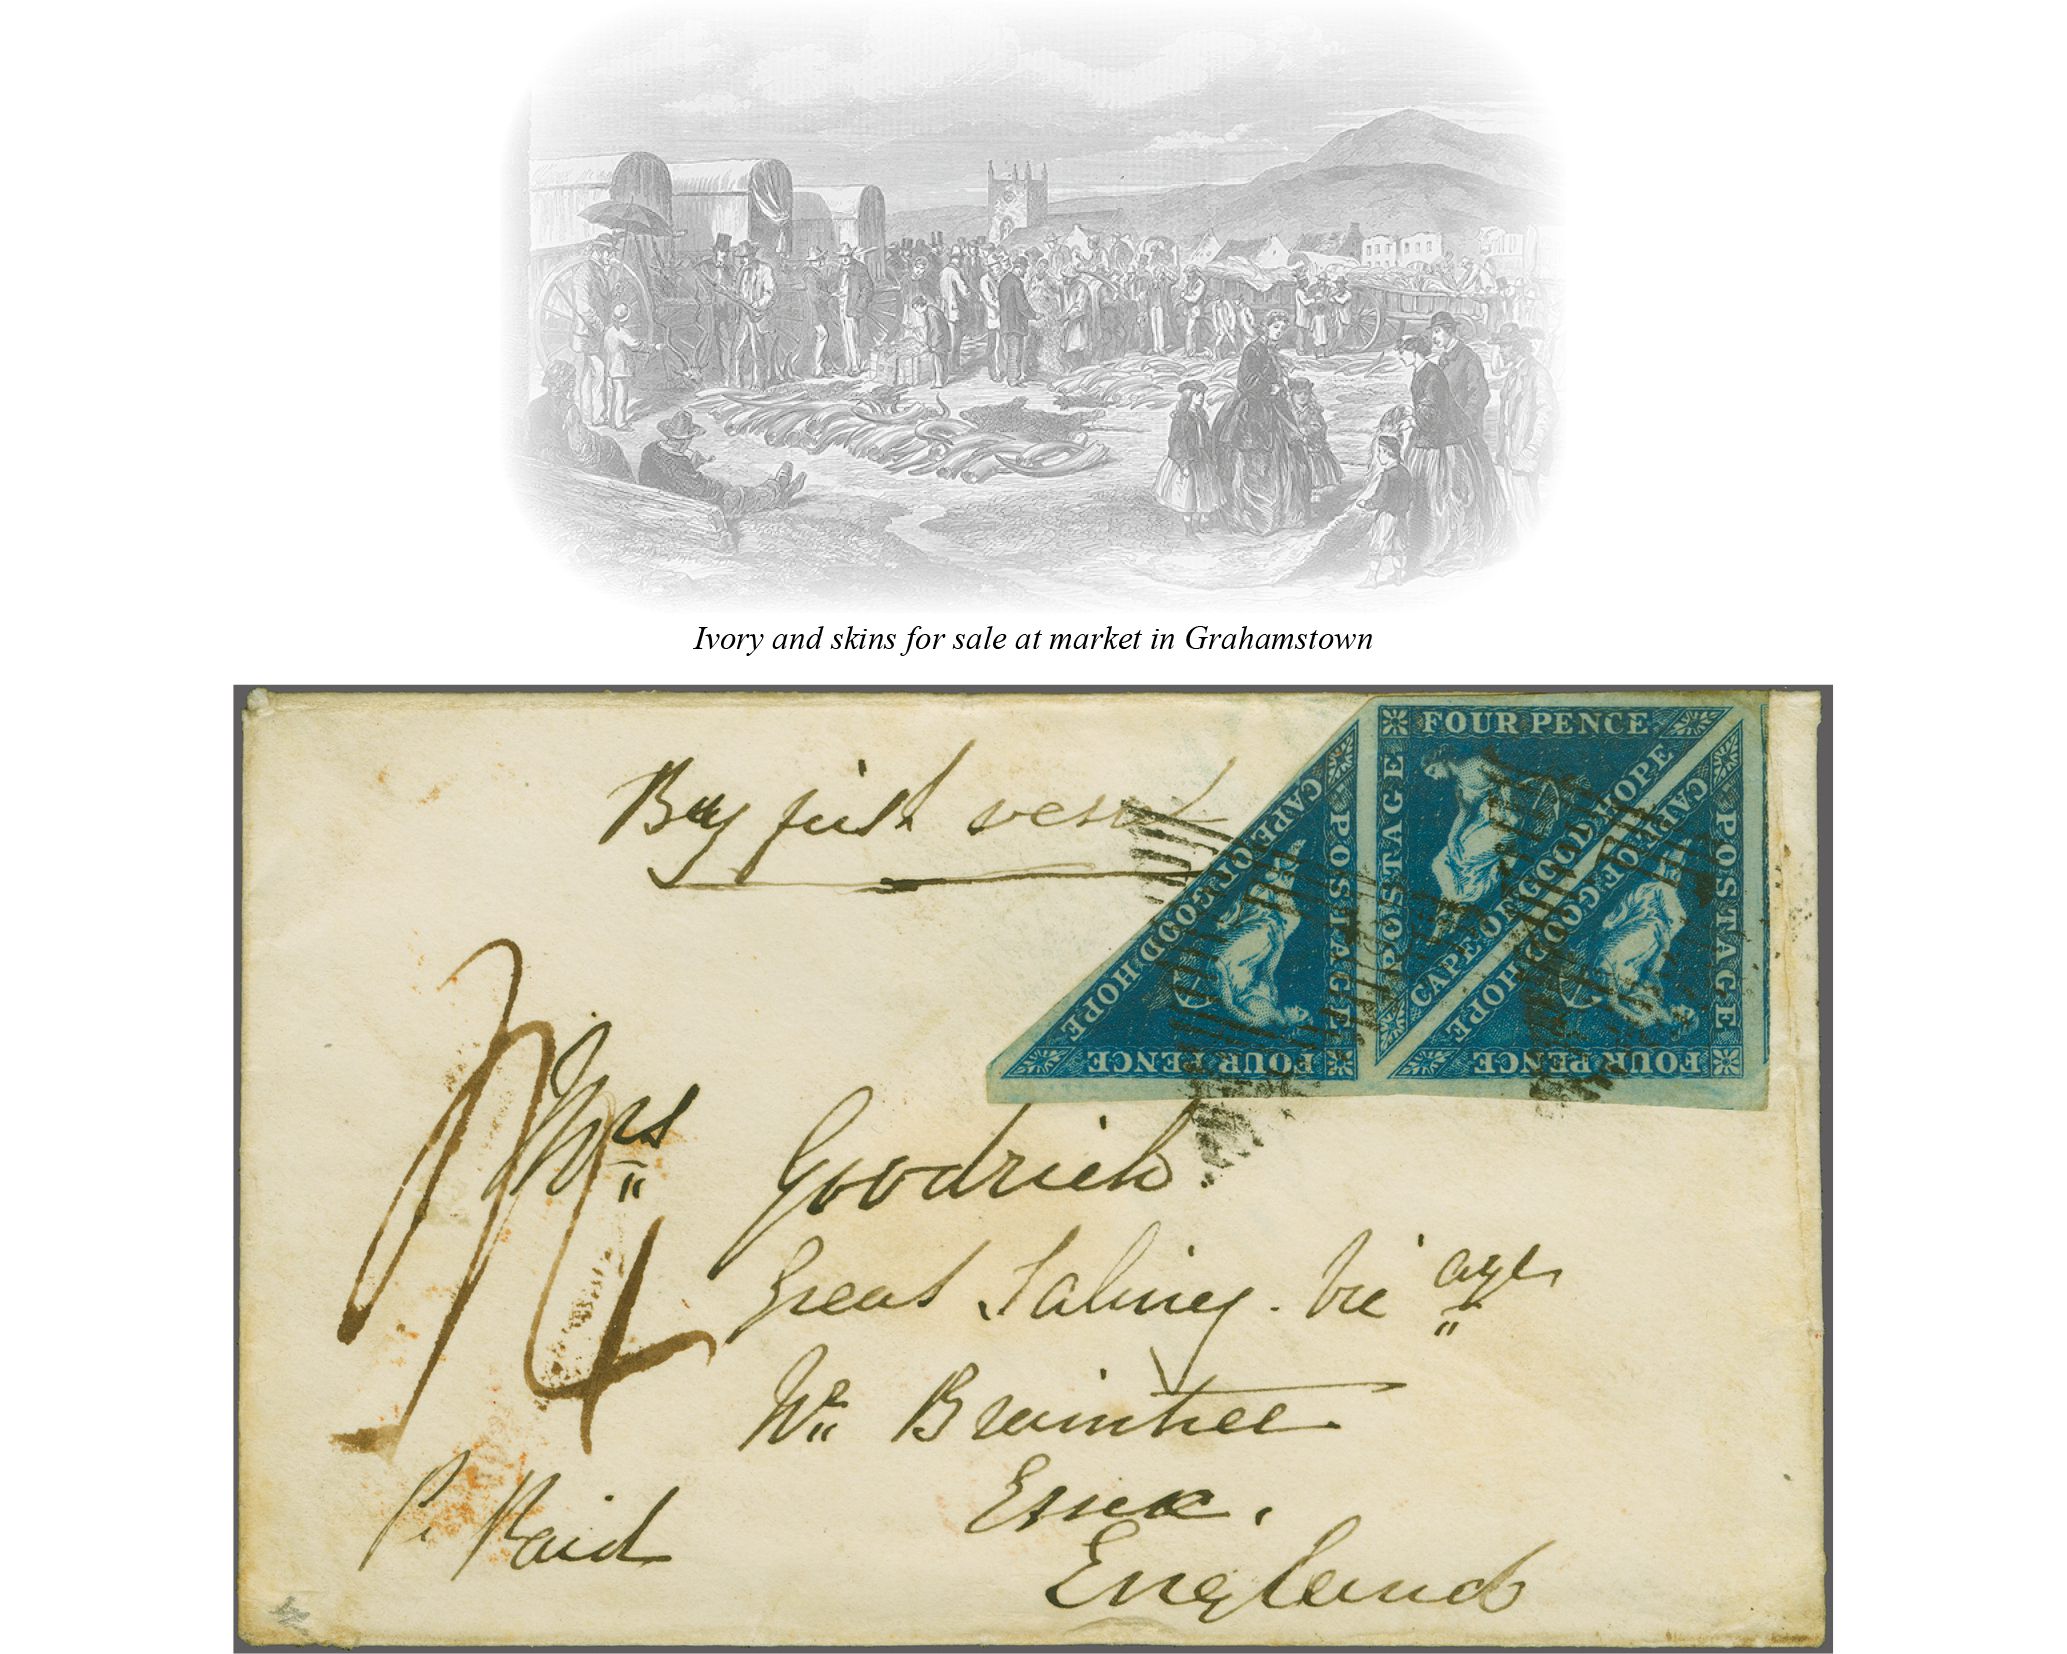 Ivory and skins for sale at market in Grahamstown
By first vessel
FOUR PENCE
POSTAGE
CAPE OF GOOD HOPE
CAPE OF GOOD HOPE
POSTAGE
FOUR PENCE
CAPE OF GOOD HOPE
POSTAGE
FOUR PENCE
Mrs Goodrich
Great Saling
Nr Braintree
Essex,
England
Paid